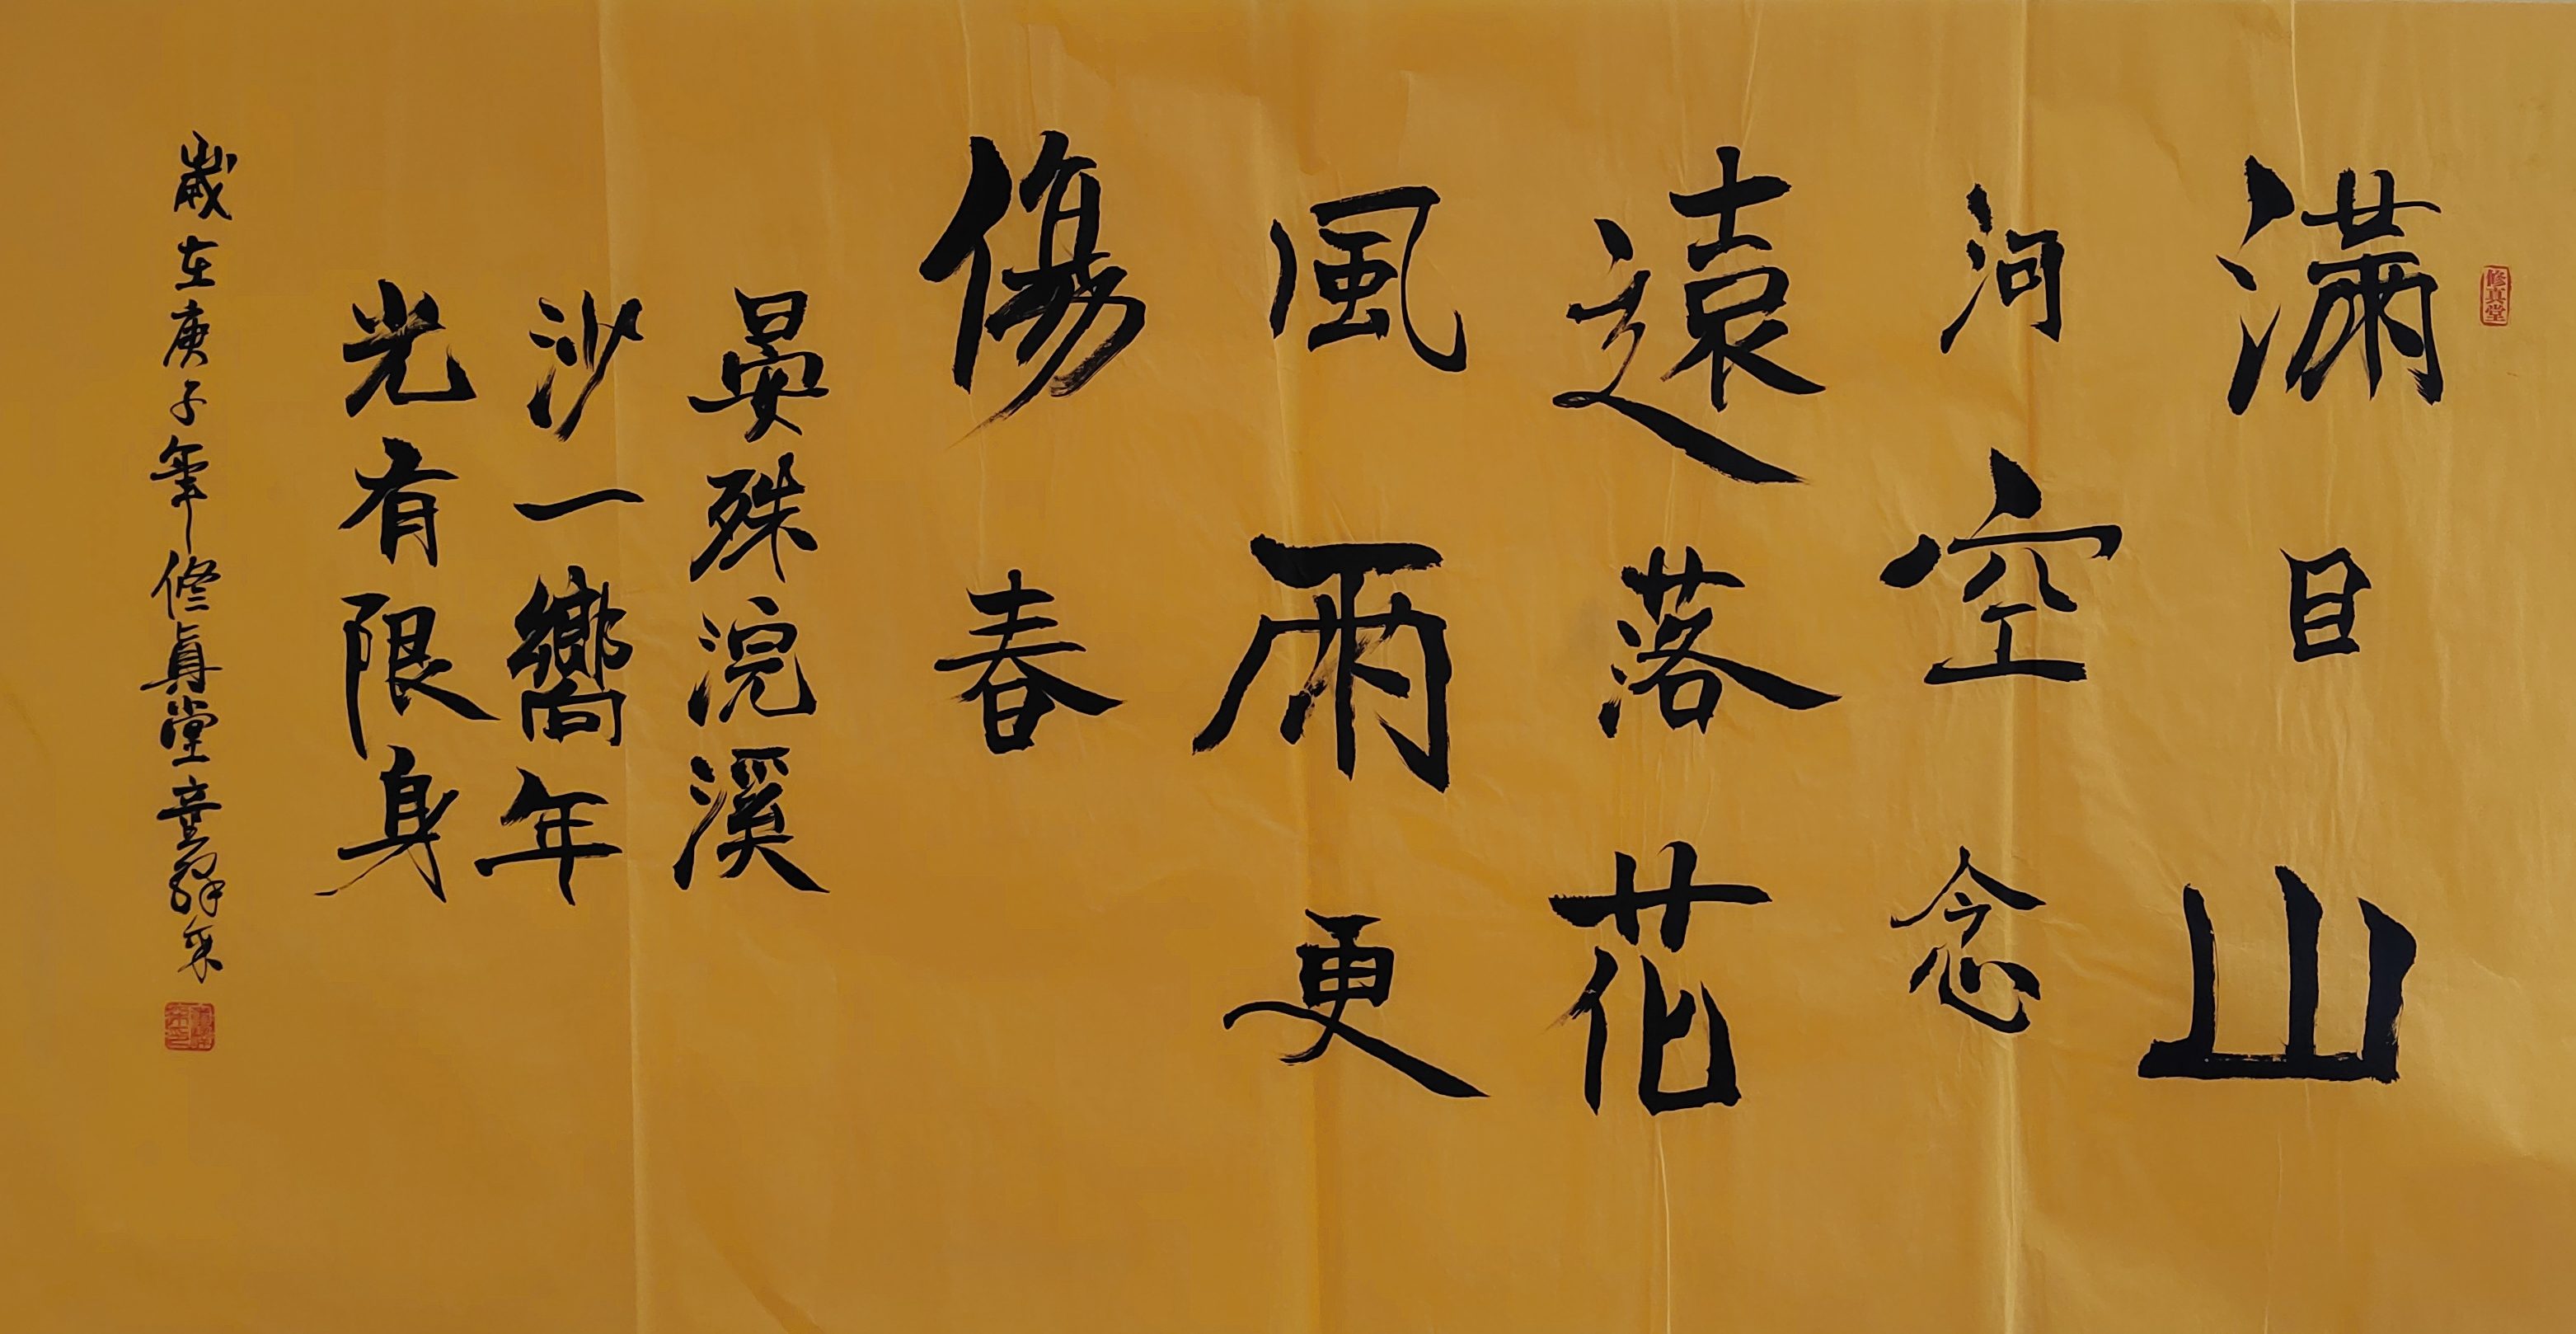 修真堂
滿目山
河空念
遠落花
風雨更
傷春
晏殊浣溪
沙一嚮年
光有限身
歲在庚子年修真堂童